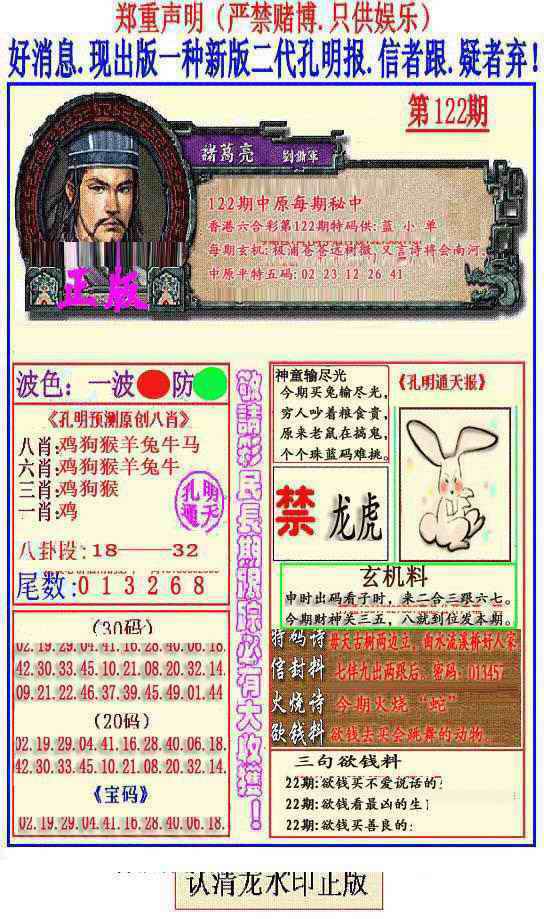 郑重声明（严禁赌博.只供娱乐）
好消息.现出版一种新版二代孔明报.信者跟.疑者弃！
第122期
諸葛亮 劉備軍
122期中原每期秘中
香港六合彩第122期特码供: 蓝 小 单
中原平特五码: 02 23 12 26 41
正版
波色：一波 防
《孔明预测原创八肖》
八肖:鸡狗猴羊兔牛马
六肖:鸡狗猴羊兔牛
三肖:鸡狗猴
一肖:鸡
孔明通天
八卦段:18——32
尾数:013268
(30码)
02.19.29.04.41.16.28.40.06.18.
42.30.33.45.10.21.08.20.32.14.
09.21.22.46.37.39.45.49.01.44
(20码)
02.19.29.04.41.16.28.40.06.18.
42.30.33.45.10.21.08.20.32.14.
《宝码》
02.19.29.04.41.16.28.40.06.18.
敬請彩民長期跟踪必有大收獲！
神童输尽光
今期买兔输尽光，
穷人吵着粮食贵，
原来老鼠在搞鬼，
个个珠蓝码难挑。
《孔明通天报》
禁 龙虎
玄机料
申时出码看子时，来二合三跟六七。
今期财神笑三五，八就到位发本期。
特码诗 曲水流溪桥好人家
信封料 七伴九出两跟后、密码：013457
火烧诗 今期火烧“蛇”
欲钱料 欲钱去买会跳舞的动物。
三句欲钱料
22期:欲钱买不爱说话的
22期:欲钱看最凶的生
22期:欲钱买善良的:
认清龙水印正版